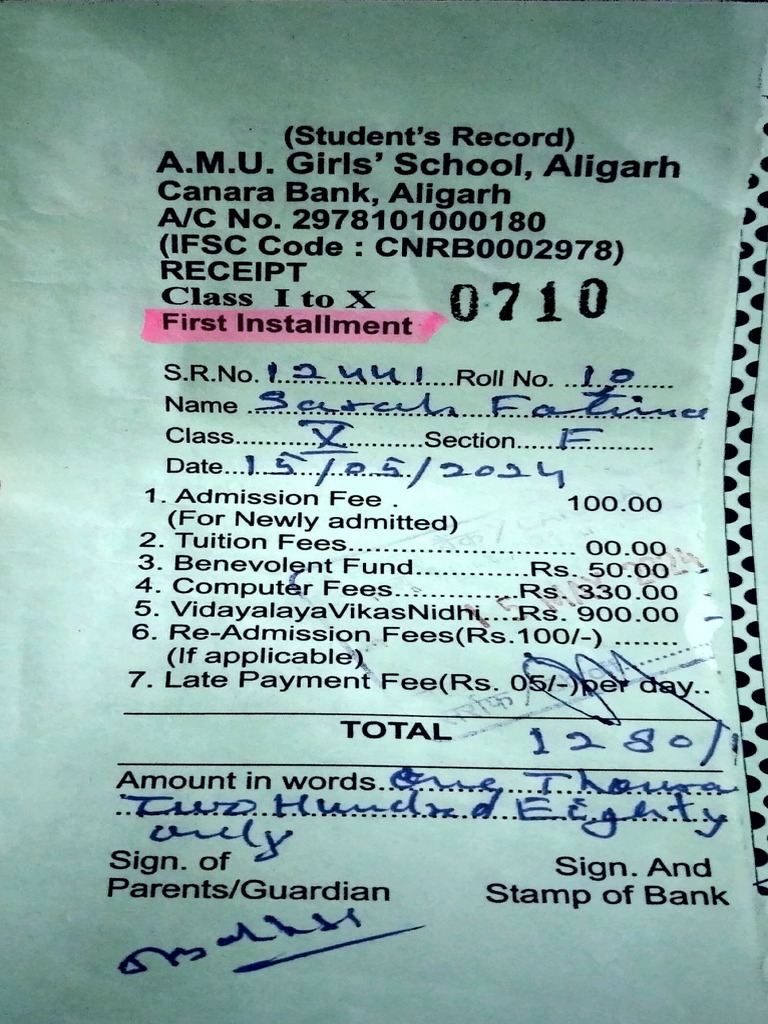 (Student's Record)
A.M.U. Girls' School, Aligarh
Canara Bank, Aligarh
A/C No. 2978101000180
(IFSC Code : CNRB0002978)
RECEIPT
Class I to X 0710
First Installment
S.R.No. 12441 Roll No. 10
Name Sarah Fatima
Class X Section F
Date 15/05/2024
1. Admission Fee . 100.00
(For Newly admitted)
2. Tuition Fees............................ 00.00
3. Benevolent Fund..............Rs. 50.00
4. Computer Fees...............Rs. 330.00
5. VidayalayaVikasNidhi....Rs. 900.00
6. Re-Admission Fees(Rs.100/-) .......
(If applicable)
7. Late Payment Fee(Rs. 05/-)per day..
TOTAL 1280/
Amount in words One Thousa
Two Hundred Eighty
only
Sign. of Sign. And
Parents/Guardian Stamp of Bank